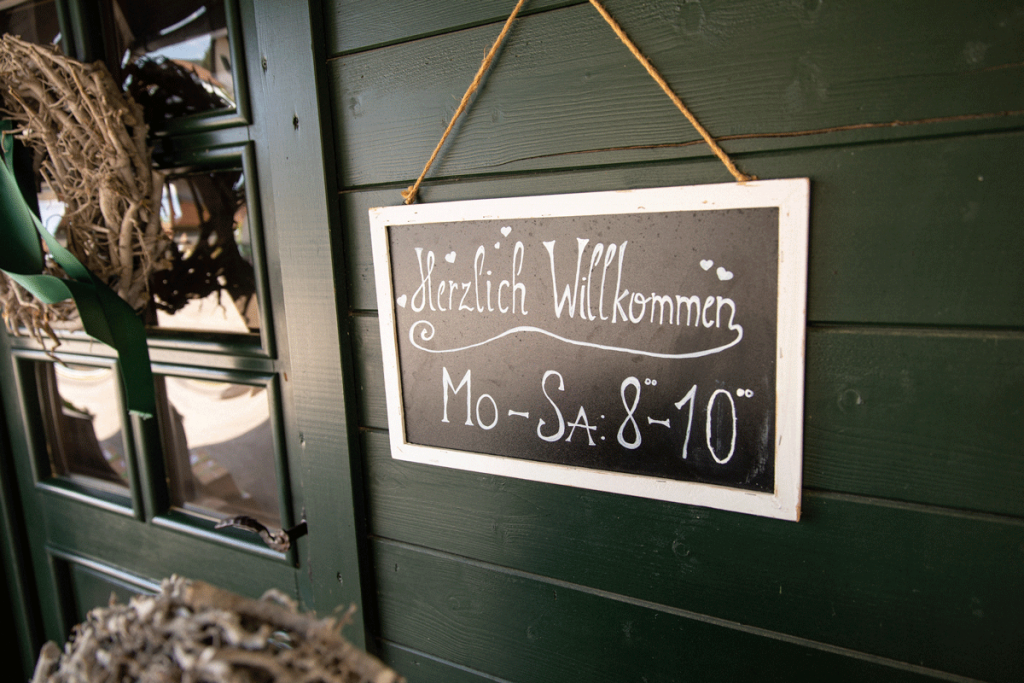 Herzlich Willkommen
Mo - Sa: 8⁰⁰ - 10⁰⁰